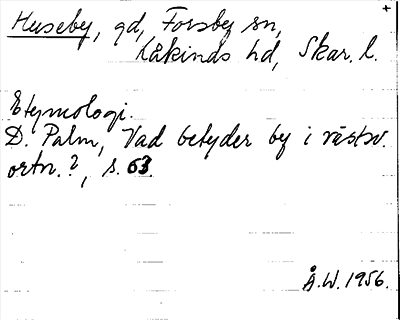 +
Huseby, gd, Forsby sn,
Kåkinds hd, Skar. l.
Etymologi.
D. Palm, Vad betyder by i västsv.
ortn.?, s. 63.
Å.W. 1956.